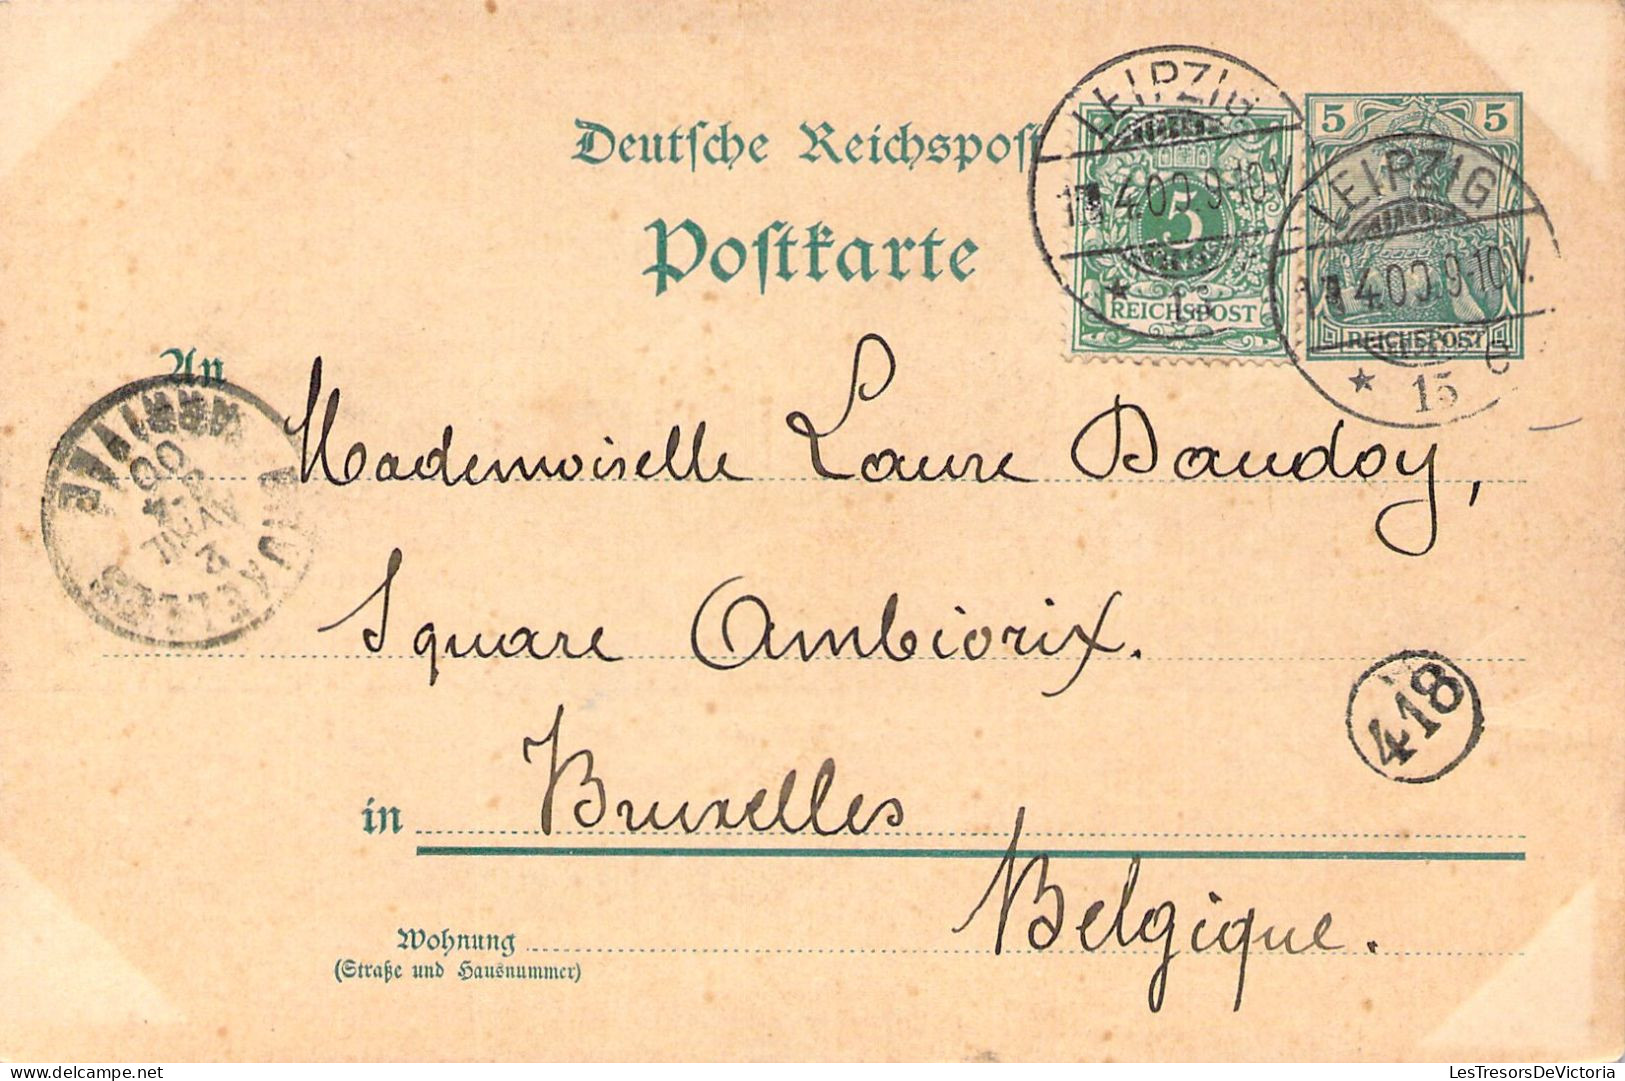 Deutsche Reichspost
Postkarte
LEIPZIG
4.00.9-10V.
* 13
5
REICHSPOST
5 5
LEIPZIG
4.00.9-10V.
* 15 c
REICHSPOST
An
ARRIVÉE
BRUXELLES
2
AVRIL
00
Mademoiselle Laure Daudoy,
Square Ambiorix.
418
in Bruxelles
Belgique.
Wohnung
(Straße und Hausnummer)
LesTresorsDeVictoria